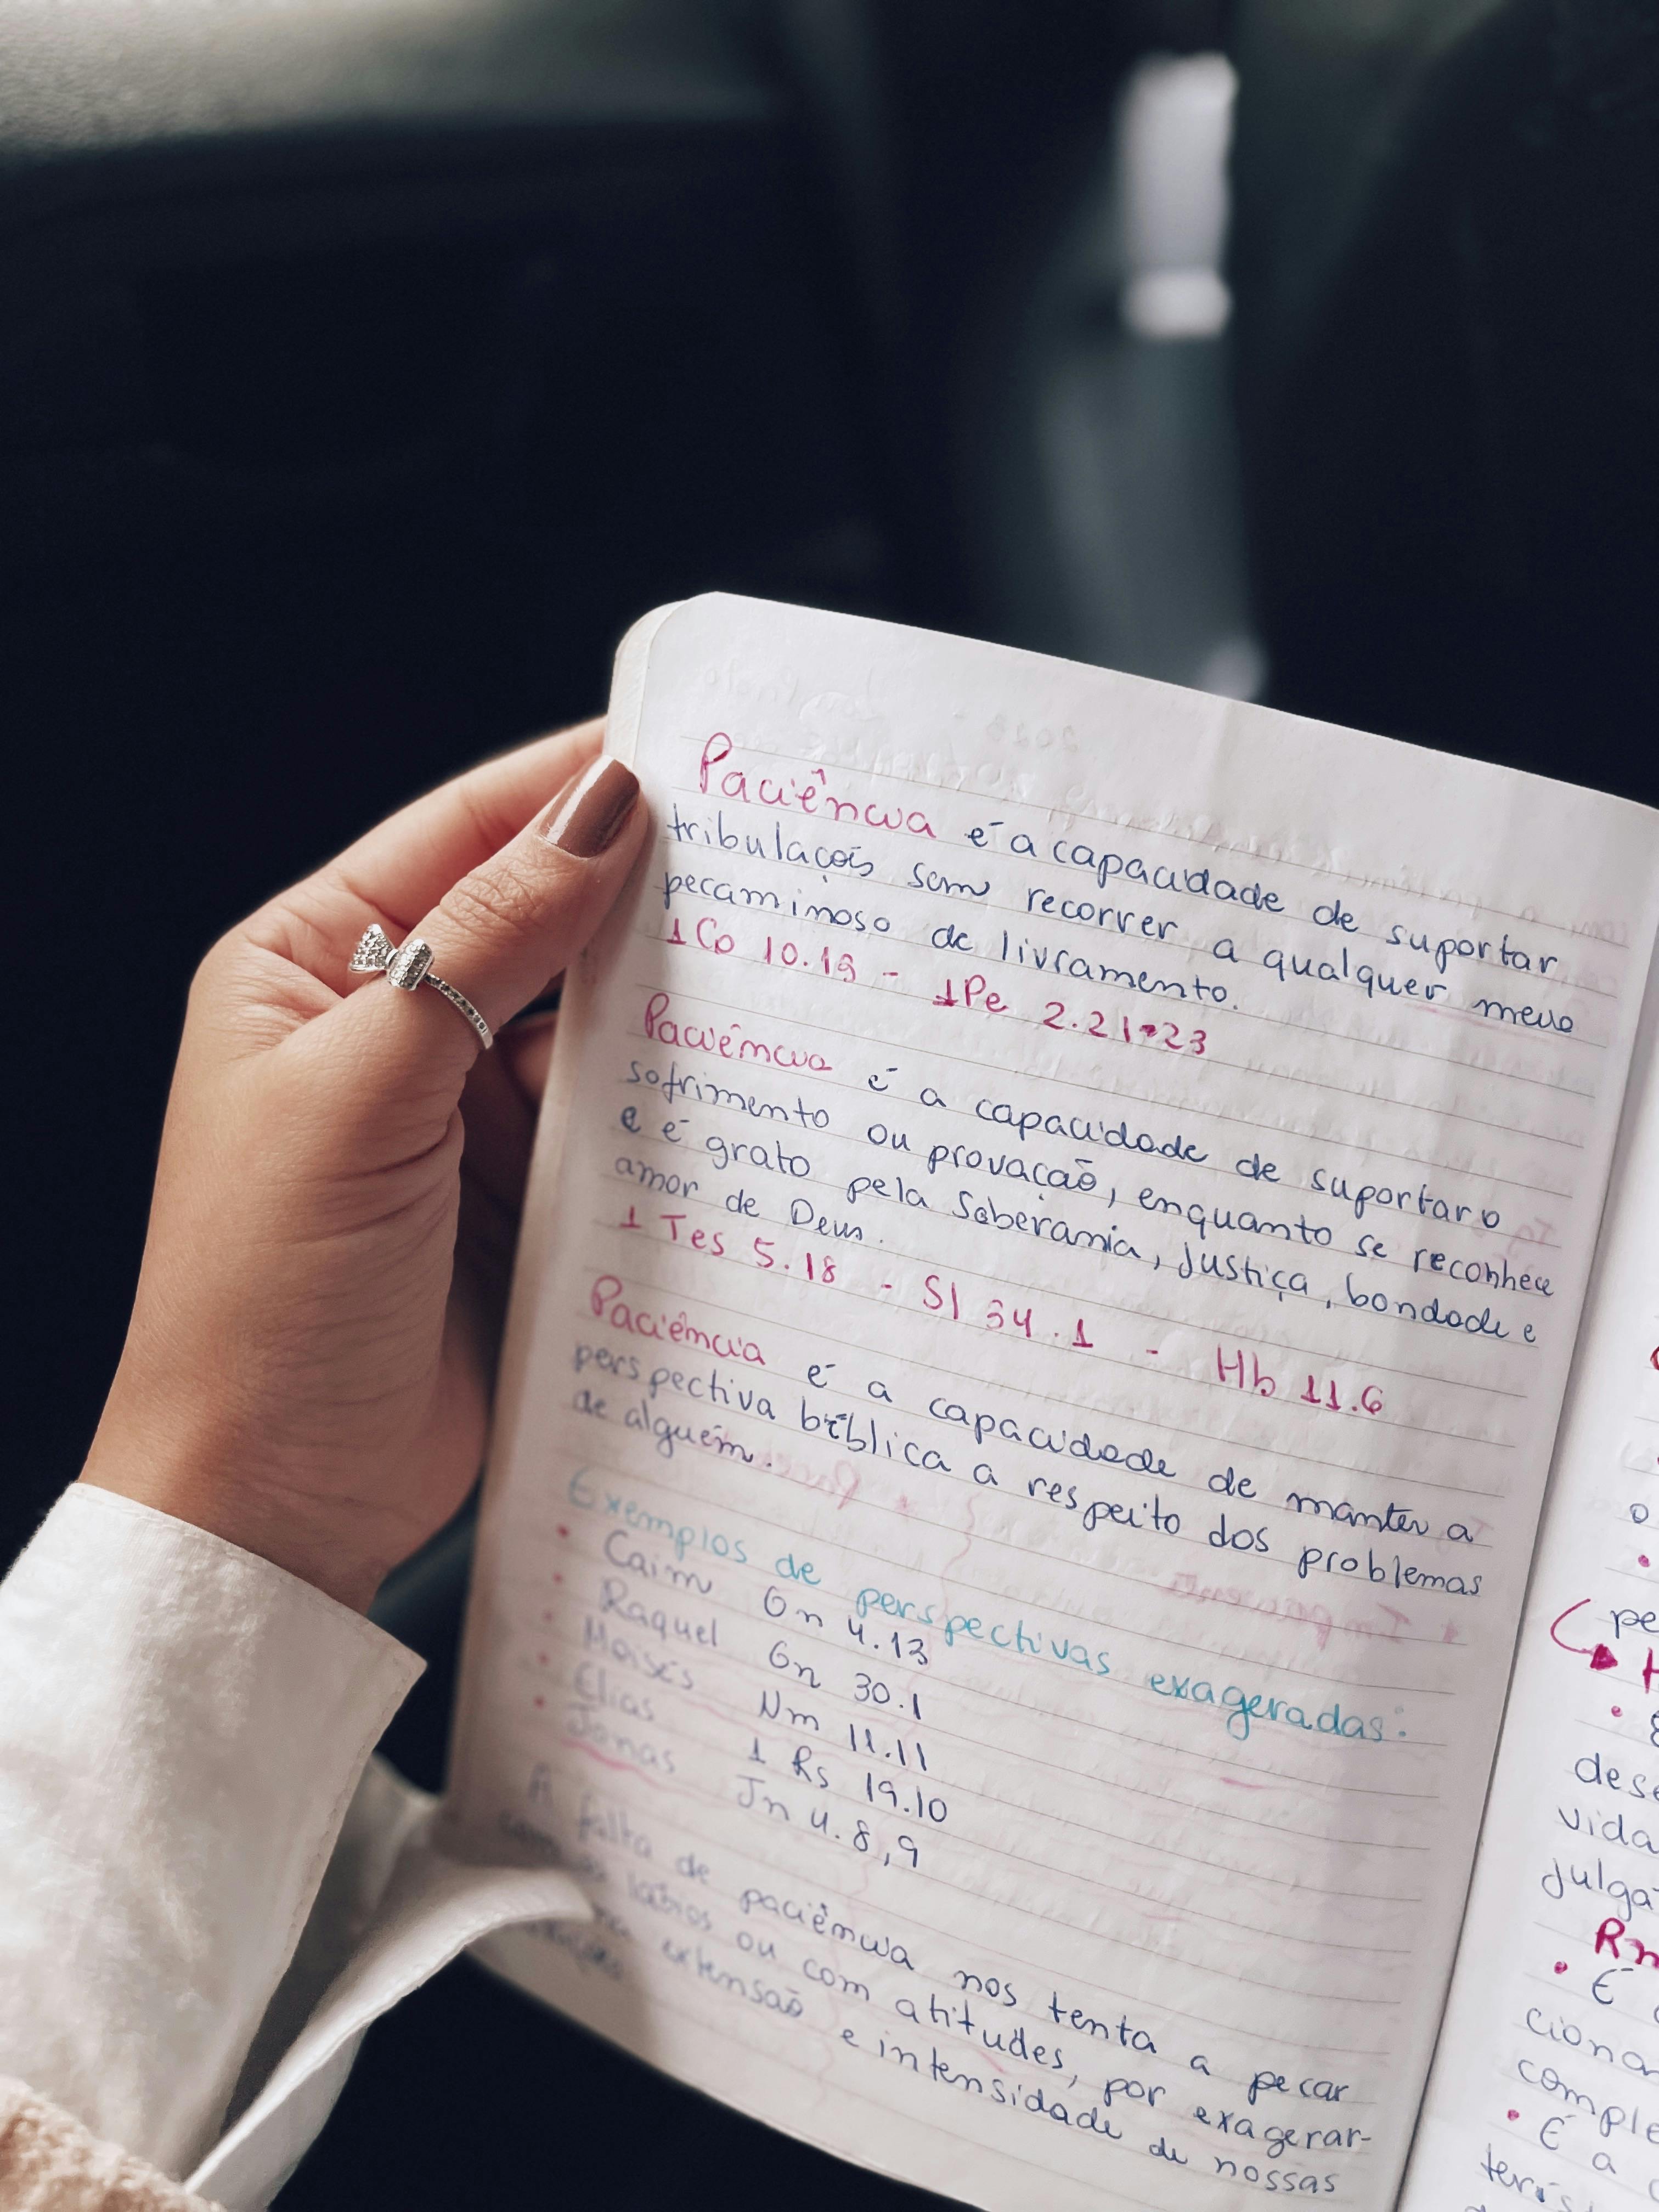 Paciência é a capacidade de suportar
tribulações sem recorrer a qualquer meio
pecaminoso de livramento.
1Co 10.13 - 1Pe 2.21-23
Paciência é a capacidade de suportar o
sofrimento ou provação, enquanto se reconhece
e é grato pela Soberania, Justiça, bondade e
amor de Deus.
1 Tes 5.18 - Sl 34.1 - Hb 11.6
Paciência é a capacidade de manter a
perspectiva bíblica a respeito dos problemas
de alguém.
Exemplos de perspectivas exageradas:
• Caim Gn 4.13
• Raquel Gn 30.1
• Moisés Nm 11.11
• Elias 1 Rs 19.10
• Jonas Jn 4.8,9
A falta de paciência nos tenta a pecar
com os lábios ou com atitudes, por exagerar-
na extensão e intensidade de nossas
o
pe
H
dese
vida
julga
Rm
• É
ciona
comple
• É a